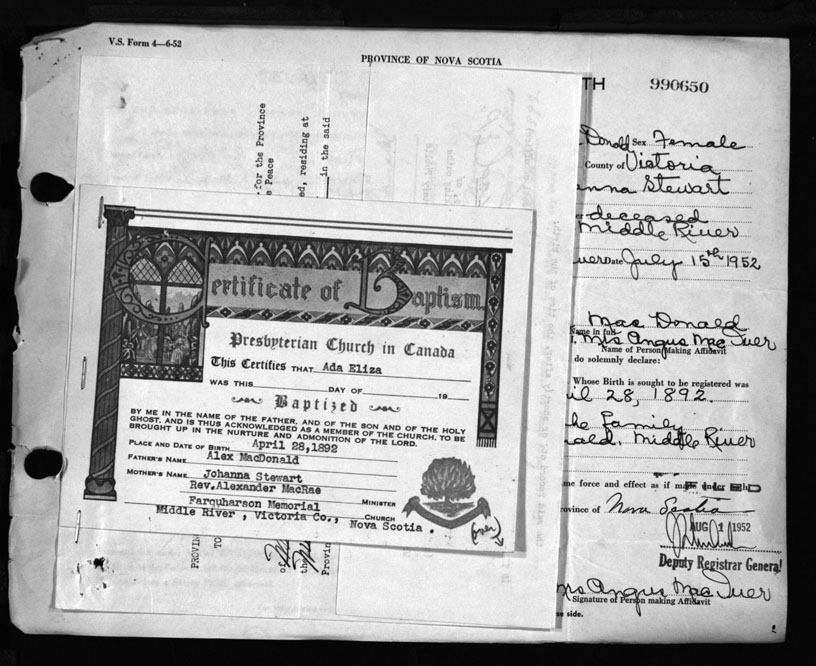 V.S. Form 4—6-52
PROVINCE OF NOVA SCOTIA
TH 990650
for the Province
e Peace
ed, residing at
in the said
Donald Sex Female
County of Victoria
nna Stewart
deceased
Middle River
Date July 15th 1952
Mac Donald
Name in full
Mrs Angus Mac Iver
Name of Person Making Affidavit
do solemnly declare:
Whose Birth is sought to be registered was
il 28, 1892.
he Family
nald, Middle River
me force and effect as if made under
rovince of Nova Scotia
AUG 1 1952
Deputy Registrar General
Mrs Angus Mac Iver
Signature of Person making Affidavit
se side.
Certificate of Baptism
Presbyterian Church in Canada
This Certifies THAT Ada Eliza
WAS THIS DAY OF 19
Baptized
BY ME IN THE NAME OF THE FATHER, AND OF THE SON AND OF THE HOLY
GHOST, AND IS THUS ACKNOWLEDGED AS A MEMBER OF THE CHURCH, TO BE
BROUGHT UP IN THE NURTURE AND ADMONITION OF THE LORD.
PLACE AND DATE OF BIRTH April 28,1892
FATHER'S NAME Alex MacDonald
MOTHER'S NAME Johanna Stewart
Rev.Alexander MacRae
MINISTER
Farquharson Memorial
CHURCH
Middle River , Victoria Co., Nova Scotia .
(over)
PROVIN
TO
of
the
Provin